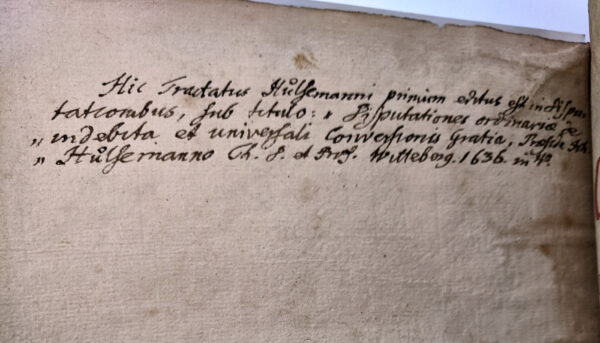 Hic Tractatus Hůlsemanni primum editus est in Dispu-
tationibus, sub titulo: „ Disputationes ordinariæ de
„ indebita et universali Conversionis Gratia, Præside Joh.
„ Hůlsemanno Th. D. et Prof. Witteberg. 1636. in 4º.